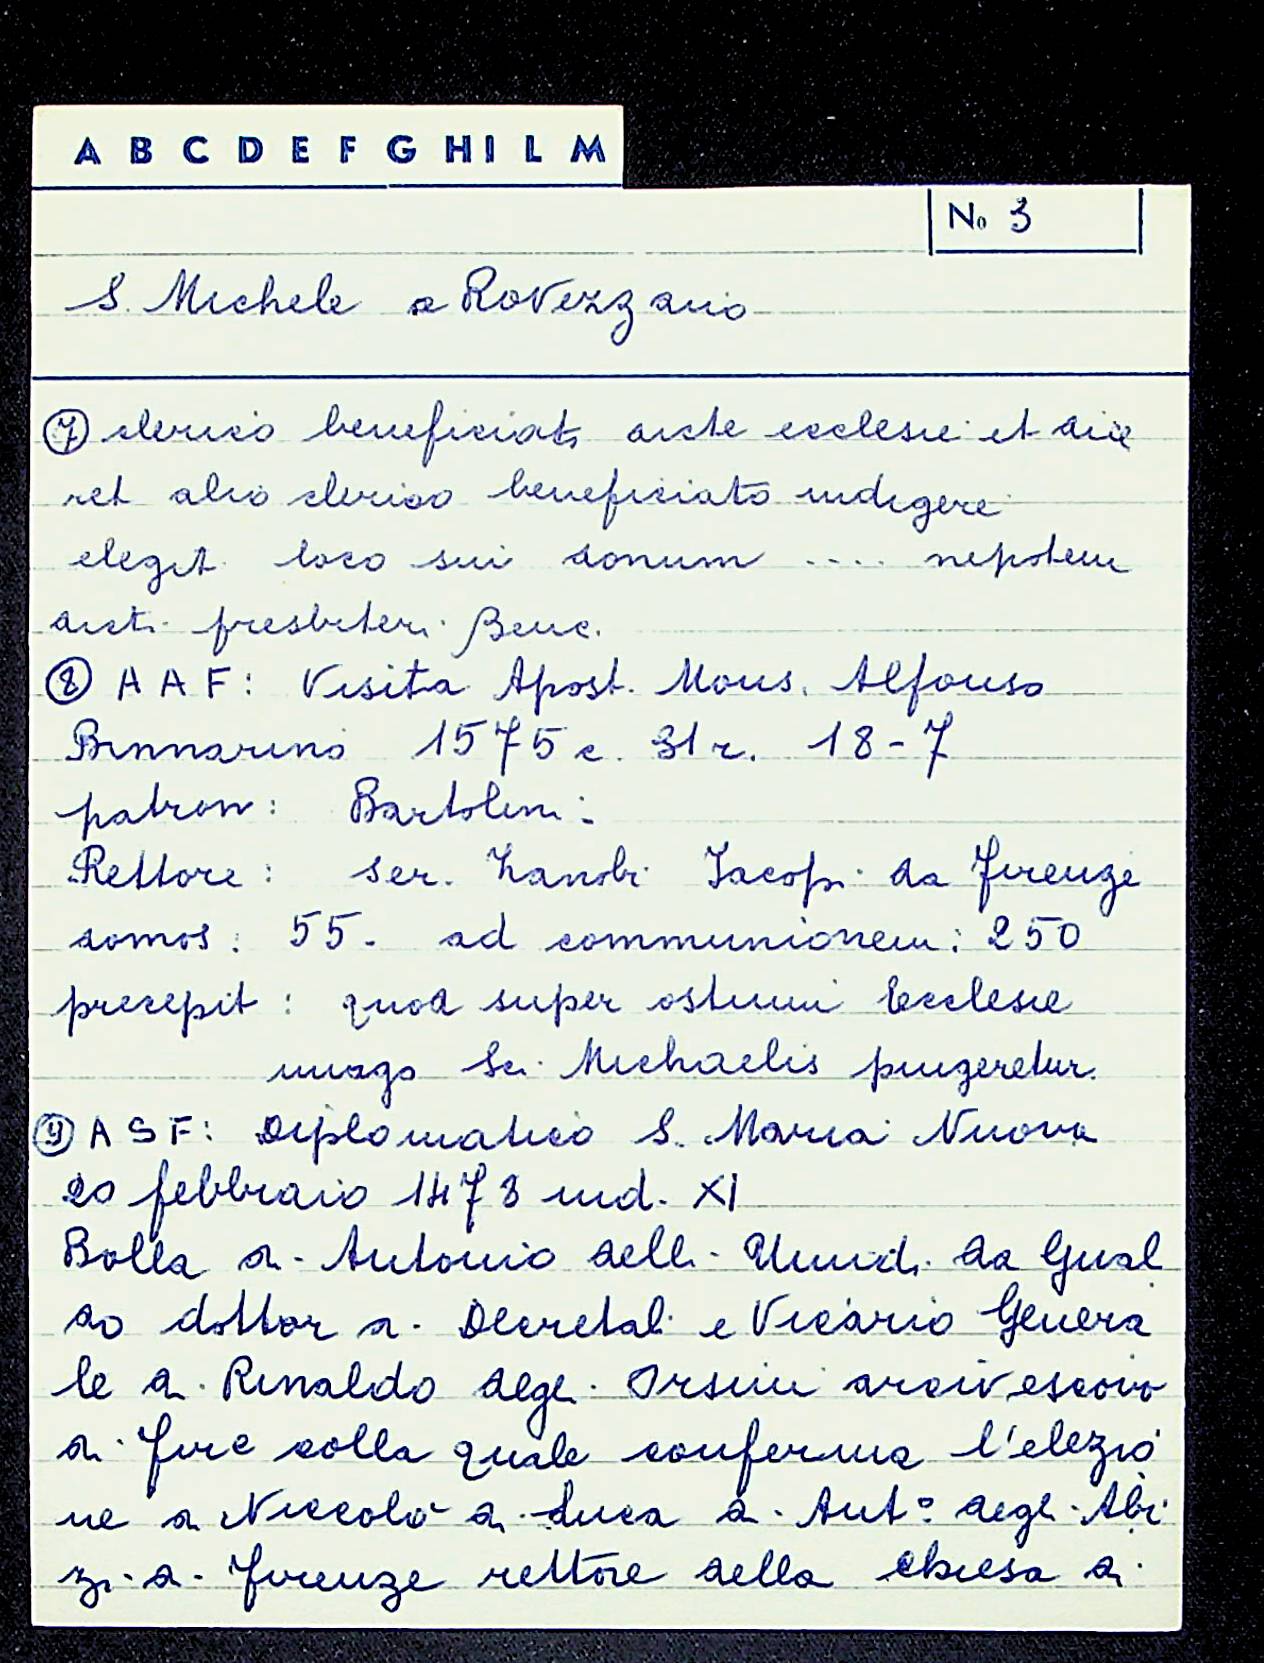 A B C D E F G H I L M
No 3
S. Michele a Rovezzano
⑦ clerico beneficiato dicte ecclesie et dice
ret alio clerico beneficiato indigere
elegit loco sui donum .... nepotem
dicti presbiteri Bene.
⑧ A A F: Visita Apost. Mons. Alfonso
Binnarino 1575 c. 31 r. 18-7
patroni: Bartolini.
Rettore: ser. Zanobi Jacopi da Firenze
domos: 55. ad communionem: 250
precepit: quod super ostium Ecclesie
imago Sci. Michaelis pingeretur.
⑨ A S F: Diplomatico S. Maria Nuova
20 febbraio 1478 ind. XI
Bolla di Antonio delli da Gual
do dottor di Decretali e Vicario Genera
le di Rinaldo degli Orsini arcivescovo
di Fire colla quale conferma l'elezio
ne di Niccolò di Luca di Ant° degli Albi
zi di Firenze rettore della chiesa di